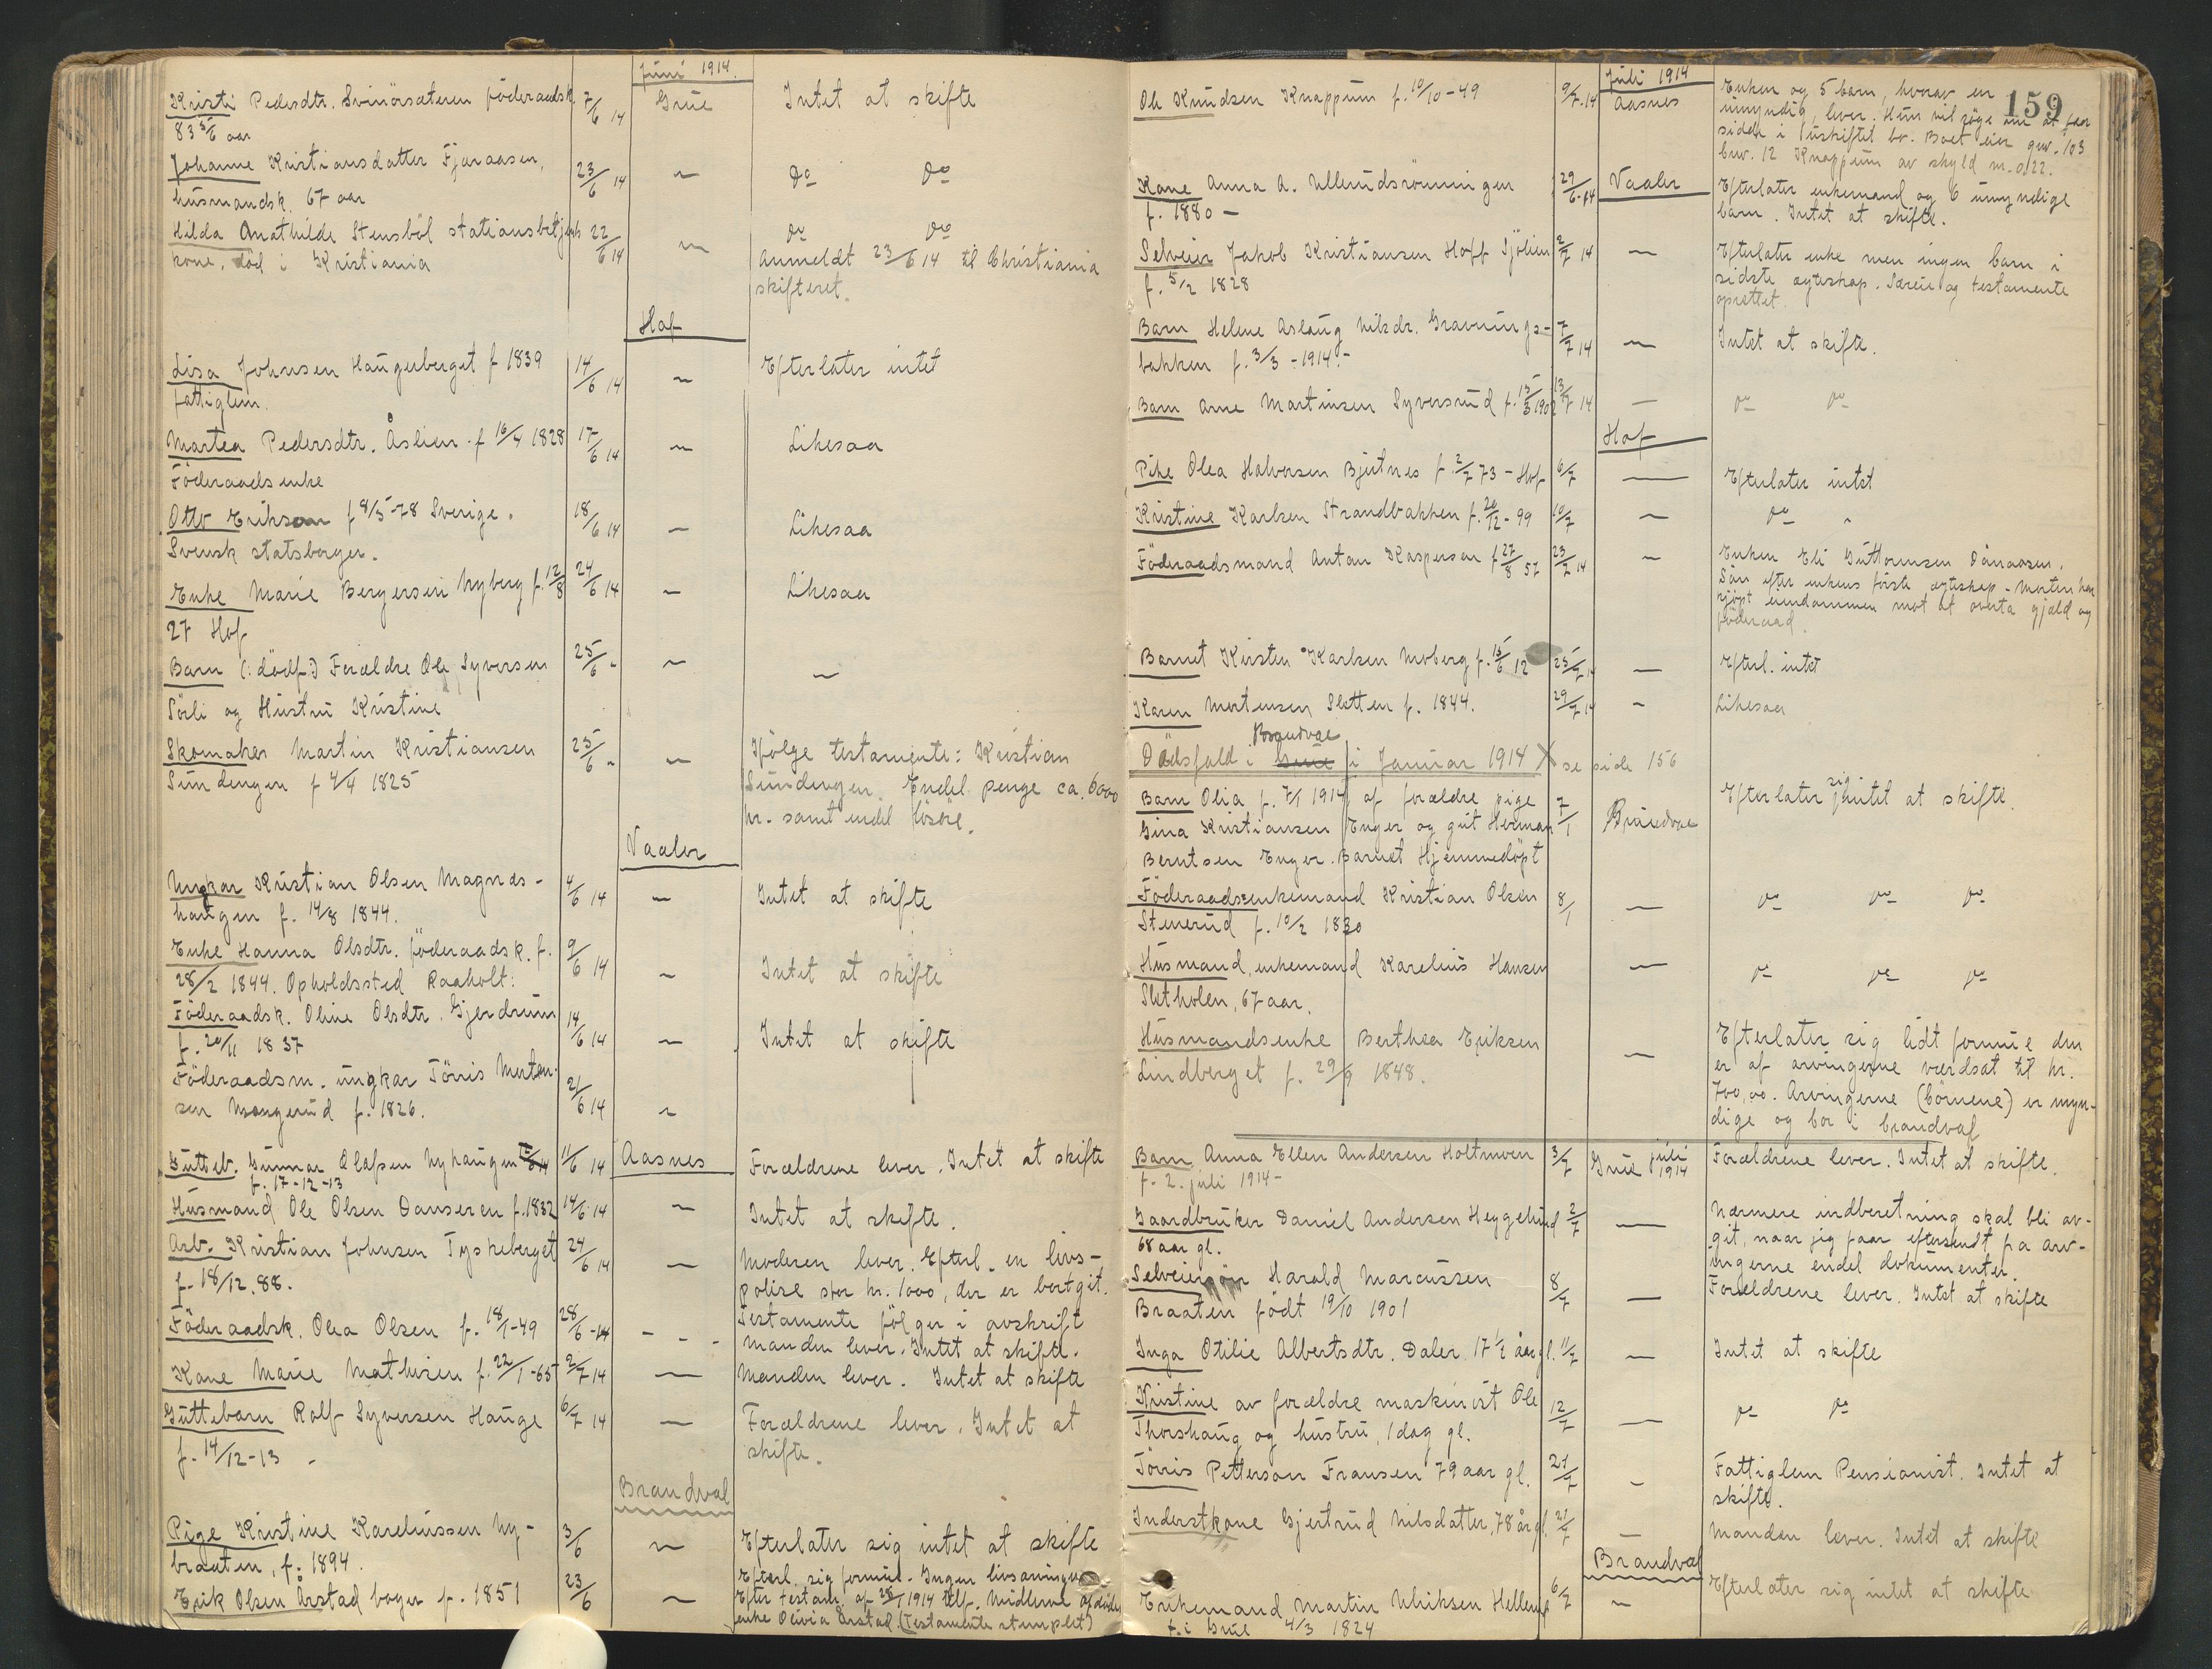 Juni 1914.
Kristi Pedersdtr. Svinörsæteren föderaadsk. 7/6 14 Grue Intet at skifte
83 5/6 aar
Johanne Kristiansdatter Fjæraasen, 23/6 14 — Do Do
husmandsk. 67 aar
Hilda Mathilde Stensböl stationsbetjents 22/6 14 — Do Do
kone, död i Kristiania
Anmeldt 23/6 14 til Christiania
skifteret.
Hof
Lisa Johnsen Haugerberget f 1839 14/6 14 — Efterlater intet
fattiglem.
Martea Pedersdtr. Åslien f 16/4 1828 17/6 14 — Likesaa
Föderaadsenke
Otto Erikson f 8/5-78 Sverige. 18/6 14 — Likesaa
Svensk statsborger.
Enke Marie Bergersen Nyberg f. 12/8 24/6 14 — Likesaa
27 Hof
Barn (: dödf.) Forældre Ole Syversen 25/6 " — —
Sörli og Hustru Kristine
Skomaker Martin Kristiansen 25/6 " — Ifölge testamente: Kristian
Sundengen f 4/4 1825 Sundengen. Endel penge ca. 6000
kr. samt endel lösöre.
Vaaler
Ungkar Kristian Olsen Magnes- 4/6 14 — Intet at skifte
haugen f. 14/8 1844.
Enke Hanna Olsdtr. föderaadsk. f. 9/6 14 — Intet at skifte
28/2 1844. Opholdssted Raaholt:
Föderaadsk. Oline Olsdtr. Gjerdrum 14/6 14 — Intet at skifte
f. 20/11 1837
Föderaadsm. ungkar Törris Morten- 21/6 14 —
sen Mangerud f. 1826.
Gutteb. Gunnar Olafsen Nyhaugen 11/6 14 Aasnes Forældrene lever. Intet at skifte
f. 17-12-13
Husmand Ole Olsen Danseren f. 1832 14/6 14 — Intet at skifte.
Arb. Kristian Johnsen Tyskeberget 24/6 14 — Moderen lever. Efterl. en livs-
f. 18/12. 88. polise stor kr. 1000, der er bortgit.
Testamente fölger i avskrift
Föderaadsk. Olea Olsen f. 18/1-49 28/6-14 - - - Manden lever. Intet at skifte.
Kone Marie Mathisen f. 22/1-65 2/7 14 — Manden lever. Intet at skifte
Guttebarn Rolf Syversen Hauge 6/7 14 — Forældrene lever. Intet at
f. 14/12-13 - skifte.
Brandval
Pige Kristine Kareliussen Ny- 3/6 — Efterlater sig intet at skifte
braaten, f. 1894.
Efterl. sig formue. Ingen livsarvinger
Erik Olsen Årstad bager f. 1851 23/6 — Efter testam. af 28/1 1914 tilf. midlerne afdödes
enke Olivia Årstad. (Testamente stemplet)
159
Juli 1914
Ole Knudsen Knappum f. 10/10-49 9/7-14 Aasnes Enken og 5 barn, hvorav en
umyndig, lever. Hun vil söge om at faa
sidde i uskiftet bo. Boet eier gnr. 103
bnr. 12 Knappum av skyld m. 0,22.
Kone Anna A. Ullerudsrönningen 29/6-14 Vaaler Efterlater enkemand og 6 umyndige
f. 1880 — barn. Intet at skifte.
Selveier Jakob Kristiansen Hoff Sjölien 2/7 14 — Efterlater enke men ingen barn i
f. 5/2 1828 sidste egteskap. Særeie og testamente
oprettet.
Barn Helene Aslaug Nilsdr. Gravnings- 7/7 14 — Intet at skifte.
bakken f. 3/3-1914.-
Barn Arne Martinsen Syversrud f. 15/3 1902 13/7 14 — Do Do
Hof
Pike Olea Halvorsen Bjutnes f. 2/7 73 - Hof 6/7 — Efterlater intet
Kristine Karlsen Strandbakken f. 20/12-99 10/7 — Do "
Föderaadsmand Anton Kasperson f 27/8 57 23/7 14 — Enken Eli Guttormsen Dånaasen.
Sön efter enkens förste egteskap - Morten har
kjöpt eiendommen mot at overta gjæld og
föderaad.
Barnet Kirsten Karlsen Moberg f. 15/6 12 25/7 14 — Efterl. intet
Karen Mortensen Sletten f. 1844. 29/7 14 — Likesaa
Brandval
Dödsfald i Grue i Januar 1914 X se side 156
Barn Olia f. 7/1 1914, af forældre pige 7/1 Brandval Efterlater sig intet at skifte.
Gina Kristiansen Enger og gut Herman
Berntsen Enger. Barnet Hjemmedöpt
Föderaadsenkemand Kristian Olsen 8/1 — Do Do Do
Stenerud f. 10/2 1830
Husmand, enkemand Karelius Hansen — Do Do Do
Sletholen, 67 aar.
Husmandsenke Berthea Eriksen — Efterlater sig lidt formue den
Lindberget f. 29/9 1848. er af arvingerne værdsat til kr.
700,00. Arvingerne (börnene) er myn-
dige og bor i Brandval
Barn Anna Ellen Andersen Holtmoen 3/7 Grue juli 1914 Forældrene lever. Intet at skifte.
f. 2. juli 1914-
Gaardbruker Daniel Andersen Heggelund 2/7 — Nærmere indberetning skal bli av-
68 aar gl. git, naar jeg faar eftersendt fra arv-
ingerne endel dokumenter.
Selveiersön Harald Marcussen 8/7 — Forældrene lever. Intet at skifte
Braaten födt 19/10 1901
Inga Otilie Albertsdtr. Daler 17 1/2 år gl. 11/7 — Intet at skifte
Kristine av forældre maskinist Ole 12/7 — Do Do
Thorshaug og hustru, 1 dag gl.
Törris Petterson Fransen 79 aar gl. 21/7 — Fattiglem Pensionist. Intet at
skifte.
Inderstkone Gjertrud Nilsdatter, 78 år gl. 21/7 — Manden lever. Intet at skifte
Brandval
Enkemand Martin Ulriksen Hellerud 6/7 — Efterlater sig intet at skifte
f. i Grue 4/3 1824